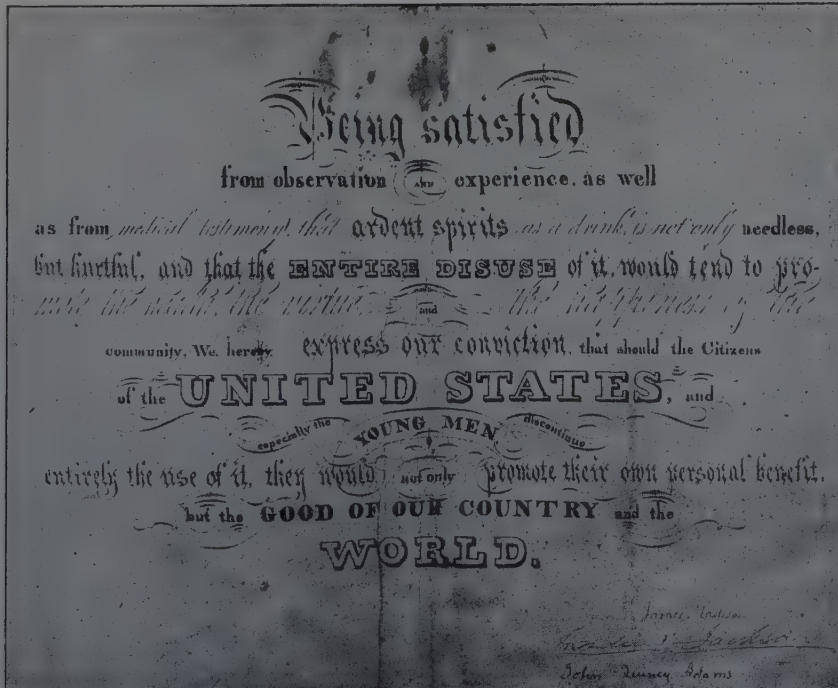 Being satisfied
from observation AND experience, as well
as from medical testimony, that ardent spirits as a drink, is not only needless,
but hurtful, and that the ENTIRE DISUSE of it, would tend to pro-
mote the health, the virtue, and the happiness of the
community, We, hereby express our conviction, that should the Citizens
of the UNITED STATES, and
especially the YOUNG MEN discontinue
entirely the use of it, they would not only promote their own personal benefit,
but the GOOD OF OUR COUNTRY and the
WORLD.
James Madison
Andrew Jackson
John Quincy Adams